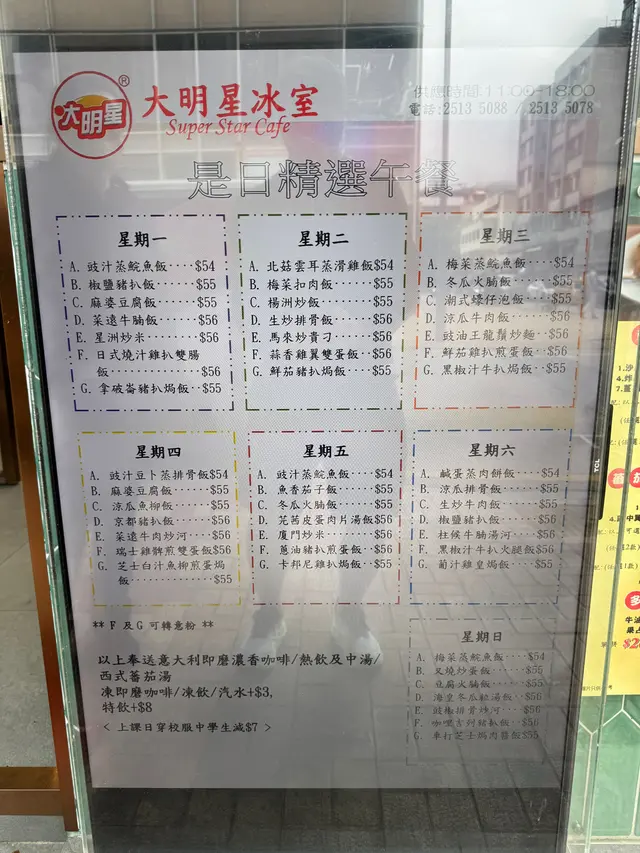 大明星
®
大明星冰室
Super Star Cafe
供應時間:11:00-18:00
電話:2513 5088 / 2513 5078
是日精選午餐
星期一
A. 豉汁蒸鯇魚飯····$54
B. 椒鹽豬扒飯·····$55
C. 麻婆豆腐飯·····$55
D. 菜遠牛腩飯·····$56
E. 星洲炒米······$56
F. 日式燒汁雞扒雙腸
飯···········$56
G. 拿破崙豬扒焗飯··$55
星期二
A. 北菇雲耳蒸滑雞飯$54
B. 梅菜扣肉飯·····$55
C. 楊洲炒飯······$55
D. 生炒排骨飯·····$56
E. 馬來炒貴刁·····$56
F. 蒜香雞翼雙蛋飯··$56
G. 鮮茄豬扒焗飯····$55
星期三
A. 梅菜蒸鯇魚飯····$54
B. 冬瓜火腩飯·····$55
C. 潮式蠔仔泡飯····$55
D. 涼瓜牛肉飯·····$56
E. 豉油王龍鬚炒麵··$56
F. 鮮茄雞扒煎蛋飯··$56
G. 黑椒汁牛扒焗飯··$55
星期四
A. 豉汁豆卜蒸排骨飯$54
B. 麻婆豆腐飯·····$55
C. 涼瓜魚柳飯·····$55
D. 京都豬扒飯·····$56
E. 菜遠牛肉炒河····$56
F. 瑞士雞髀煎雙蛋飯$56
G. 芝士白汁魚柳煎蛋焗
飯···········$55
星期五
A. 豉汁蒸鯇魚飯····$54
B. 魚香茄子飯·····$55
C. 冬瓜火腩飯·····$55
D. 芫茜皮蛋肉片湯飯$56
E. 廈門炒米······$56
F. 蔥油豬扒煎蛋飯··$56
G. 卡邦尼雞扒焗飯··$55
星期六
A. 鹹蛋蒸肉餅飯····$54
B. 涼瓜排骨飯·····$55
C. 生炒牛肉飯·····$55
D. 椒鹽豬扒飯·····$56
E. 柱候牛腩湯河····$56
F. 黑椒汁牛扒火腿飯$56
G. 葡汁雞皇焗飯····$55
** F 及 G 可轉意粉 **
以上奉送意大利即磨濃香咖啡/熱飲及中湯/
西式蕃茄湯
凍即磨咖啡/凍飲/汽水+$3,
特飲+$8
< 上課日穿校服中學生減$7 >
星期日
A. 梅菜蒸鯇魚飯····$54
B. 叉燒炒蛋飯·····$55
C. 豆腐火腩飯·····$55
D. 海皇冬瓜粒湯飯··$56
E. 豉椒排骨炒河····$56
F. 咖哩吉列豬扒飯··$56
G. 車打芝士焗肉醬飯$55